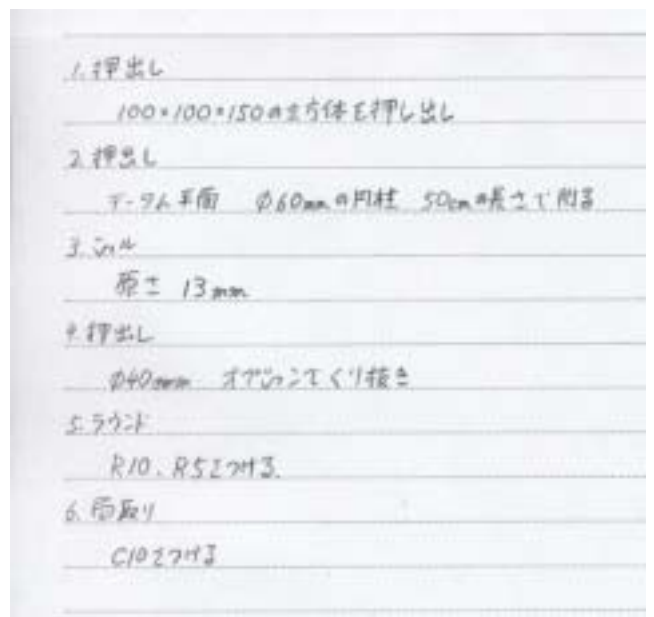 1.押出し
100×100×150の立方体を押し出し
2.押出し
データム平面 φ60mmの円柱 50cmの長さで削る
3.シェル
厚さ 13mm
4.押出し
φ40mm オプションでくり抜き
5.ラウンド
R10、R5をつける。
6.面取り
C10をつける